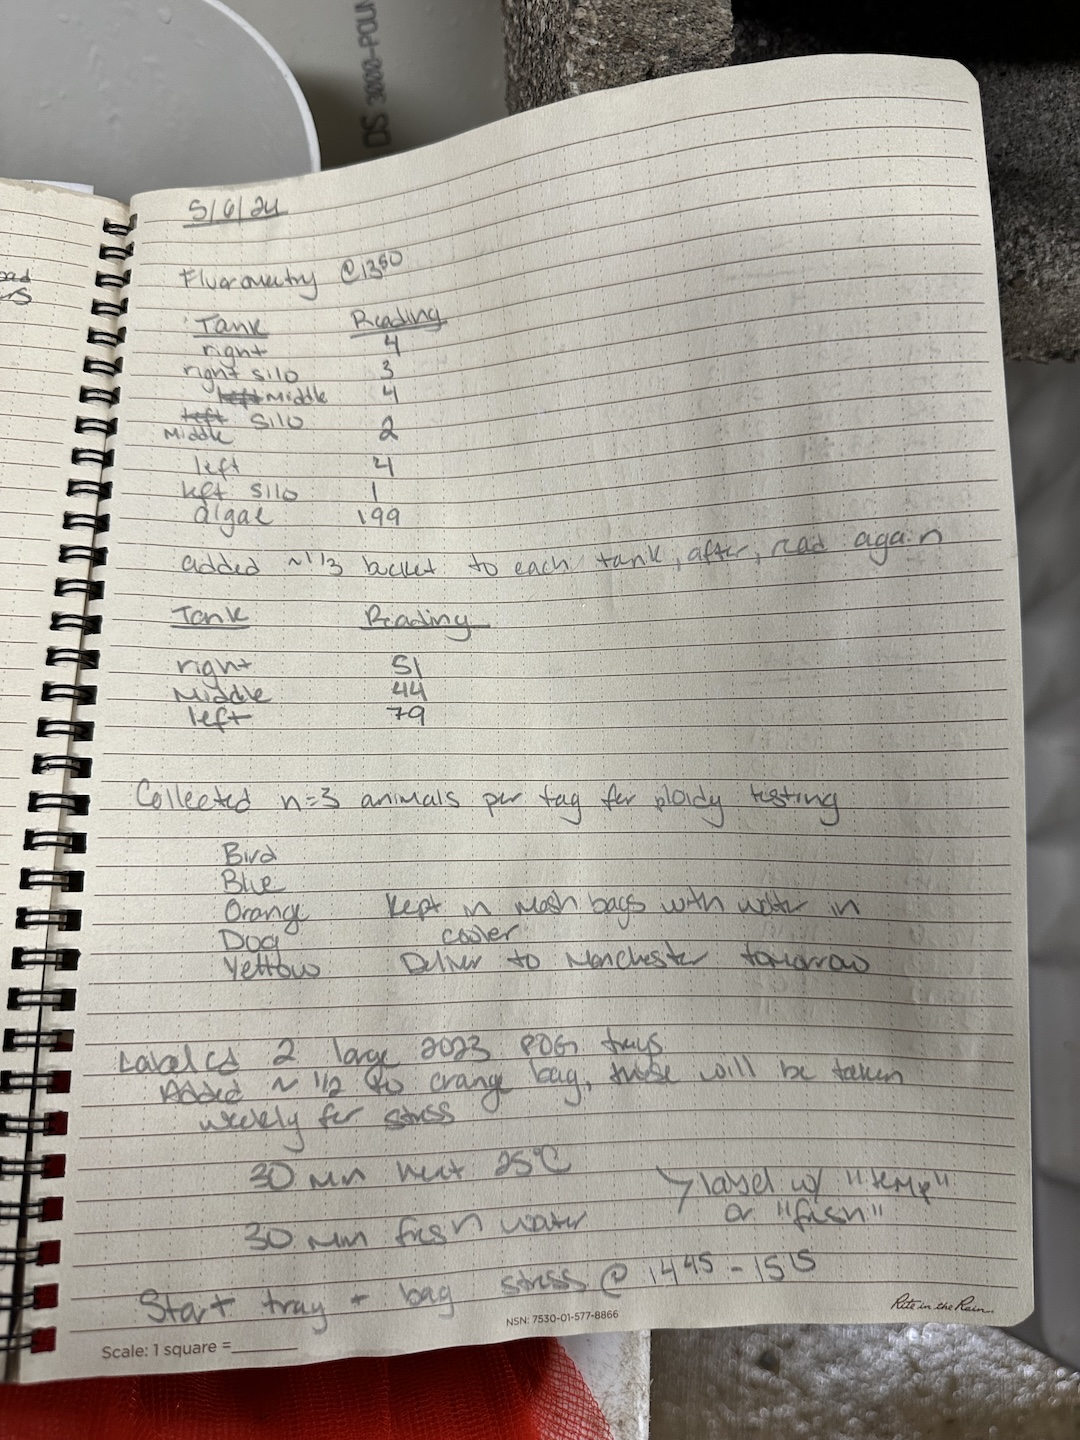 DS 3000-POUN
5/6/24
Fluorometry @ 1350
Tank Reading
right 4
right silo 3
left Middle 4
left silo 2
Middle
left 4
left silo 1
algae 199
added ~1/3 bucket to each tank, after, read again
Tank Reading
right 51
Middle 44
left 79
Collected n=3 animals per tag for ploidy testing
Bird
Blue
Orange Kept in mesh bags with water in
Dog cooler
Yellow Deliver to Manchester tomorrow
Labeled 2 large 2023 POGI trays
Added ~ 1/2 to orange bag, these will be taken
weekly for stress
30 min heat 25°C
label w/ "temp"
or "fresh"
30 min fresh water
Start tray + bag stress @ 1445 - 1515
NSN: 7530-01-577-8866
Rite in the Rain
Scale: 1 square =